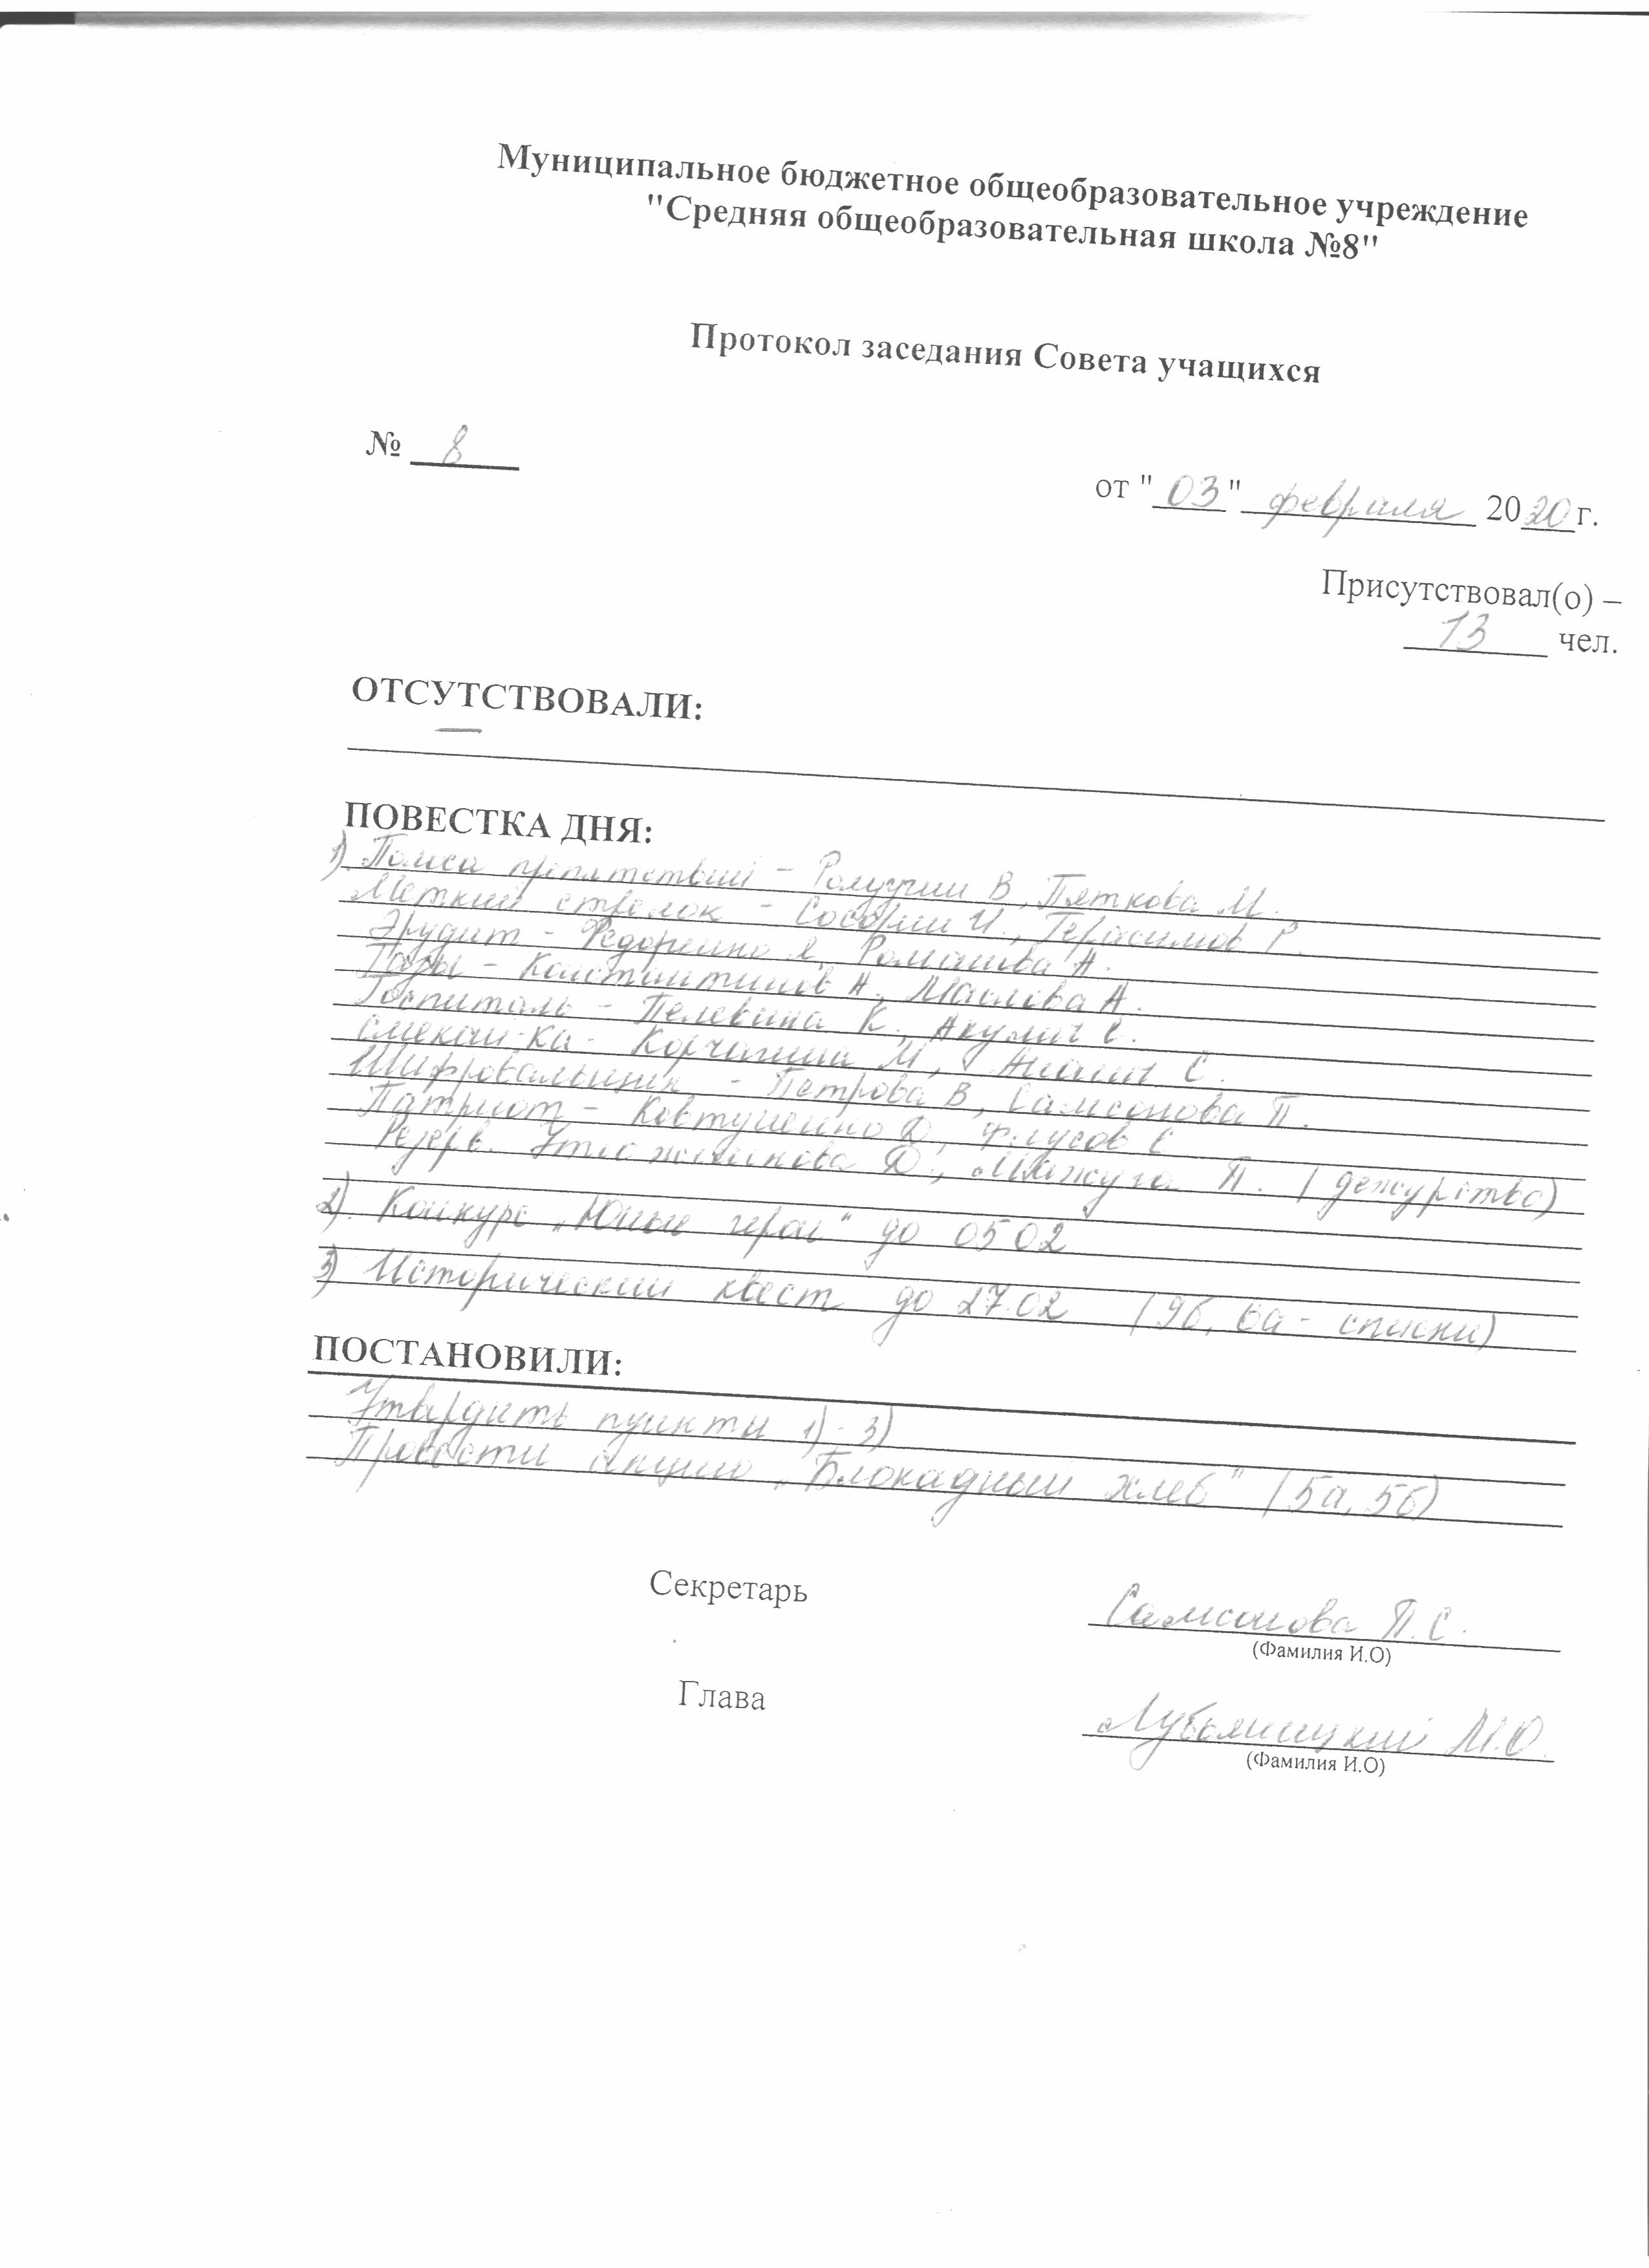 Муниципальное бюджетное общеобразовательное учреждение
"Средняя общеобразовательная школа №8"
Протокол заседания Совета учащихся
№ 8
от "03" февраля 2020г.
Присутствовал(о) –
13 чел.
ОТСУТСТВОВАЛИ:
—
ПОВЕСТКА ДНЯ:
1). Полоса препятствий - В, Пяткова М.
Меткий стрелок - И., Герасимов Р.
Эрудит - Федоренко Я, Ромашова А.
- Константинов А, Маслова А.
Госпиталь - Пелевина К, Акулич Е.
Смекал-ка - Корчагина М, С.
Шифровальщик - Петрова В, Самсонова П.
Патриот - Ковтуненко Д, Е
Резерв. Д., П. (дежурство)
2). Конкурс „Юные герои“ до 05 02
3) Исторический квест до 27.02 (9б, 6а - списки)
ПОСТАНОВИЛИ:
Утвердить пункты 1) - 3)
Провести акцию „Блокадный хлеб" (5а, 5б)
Секретарь
Самсонова П.С.
(Фамилия И.О)
Глава
М.О.
(Фамилия И.О)